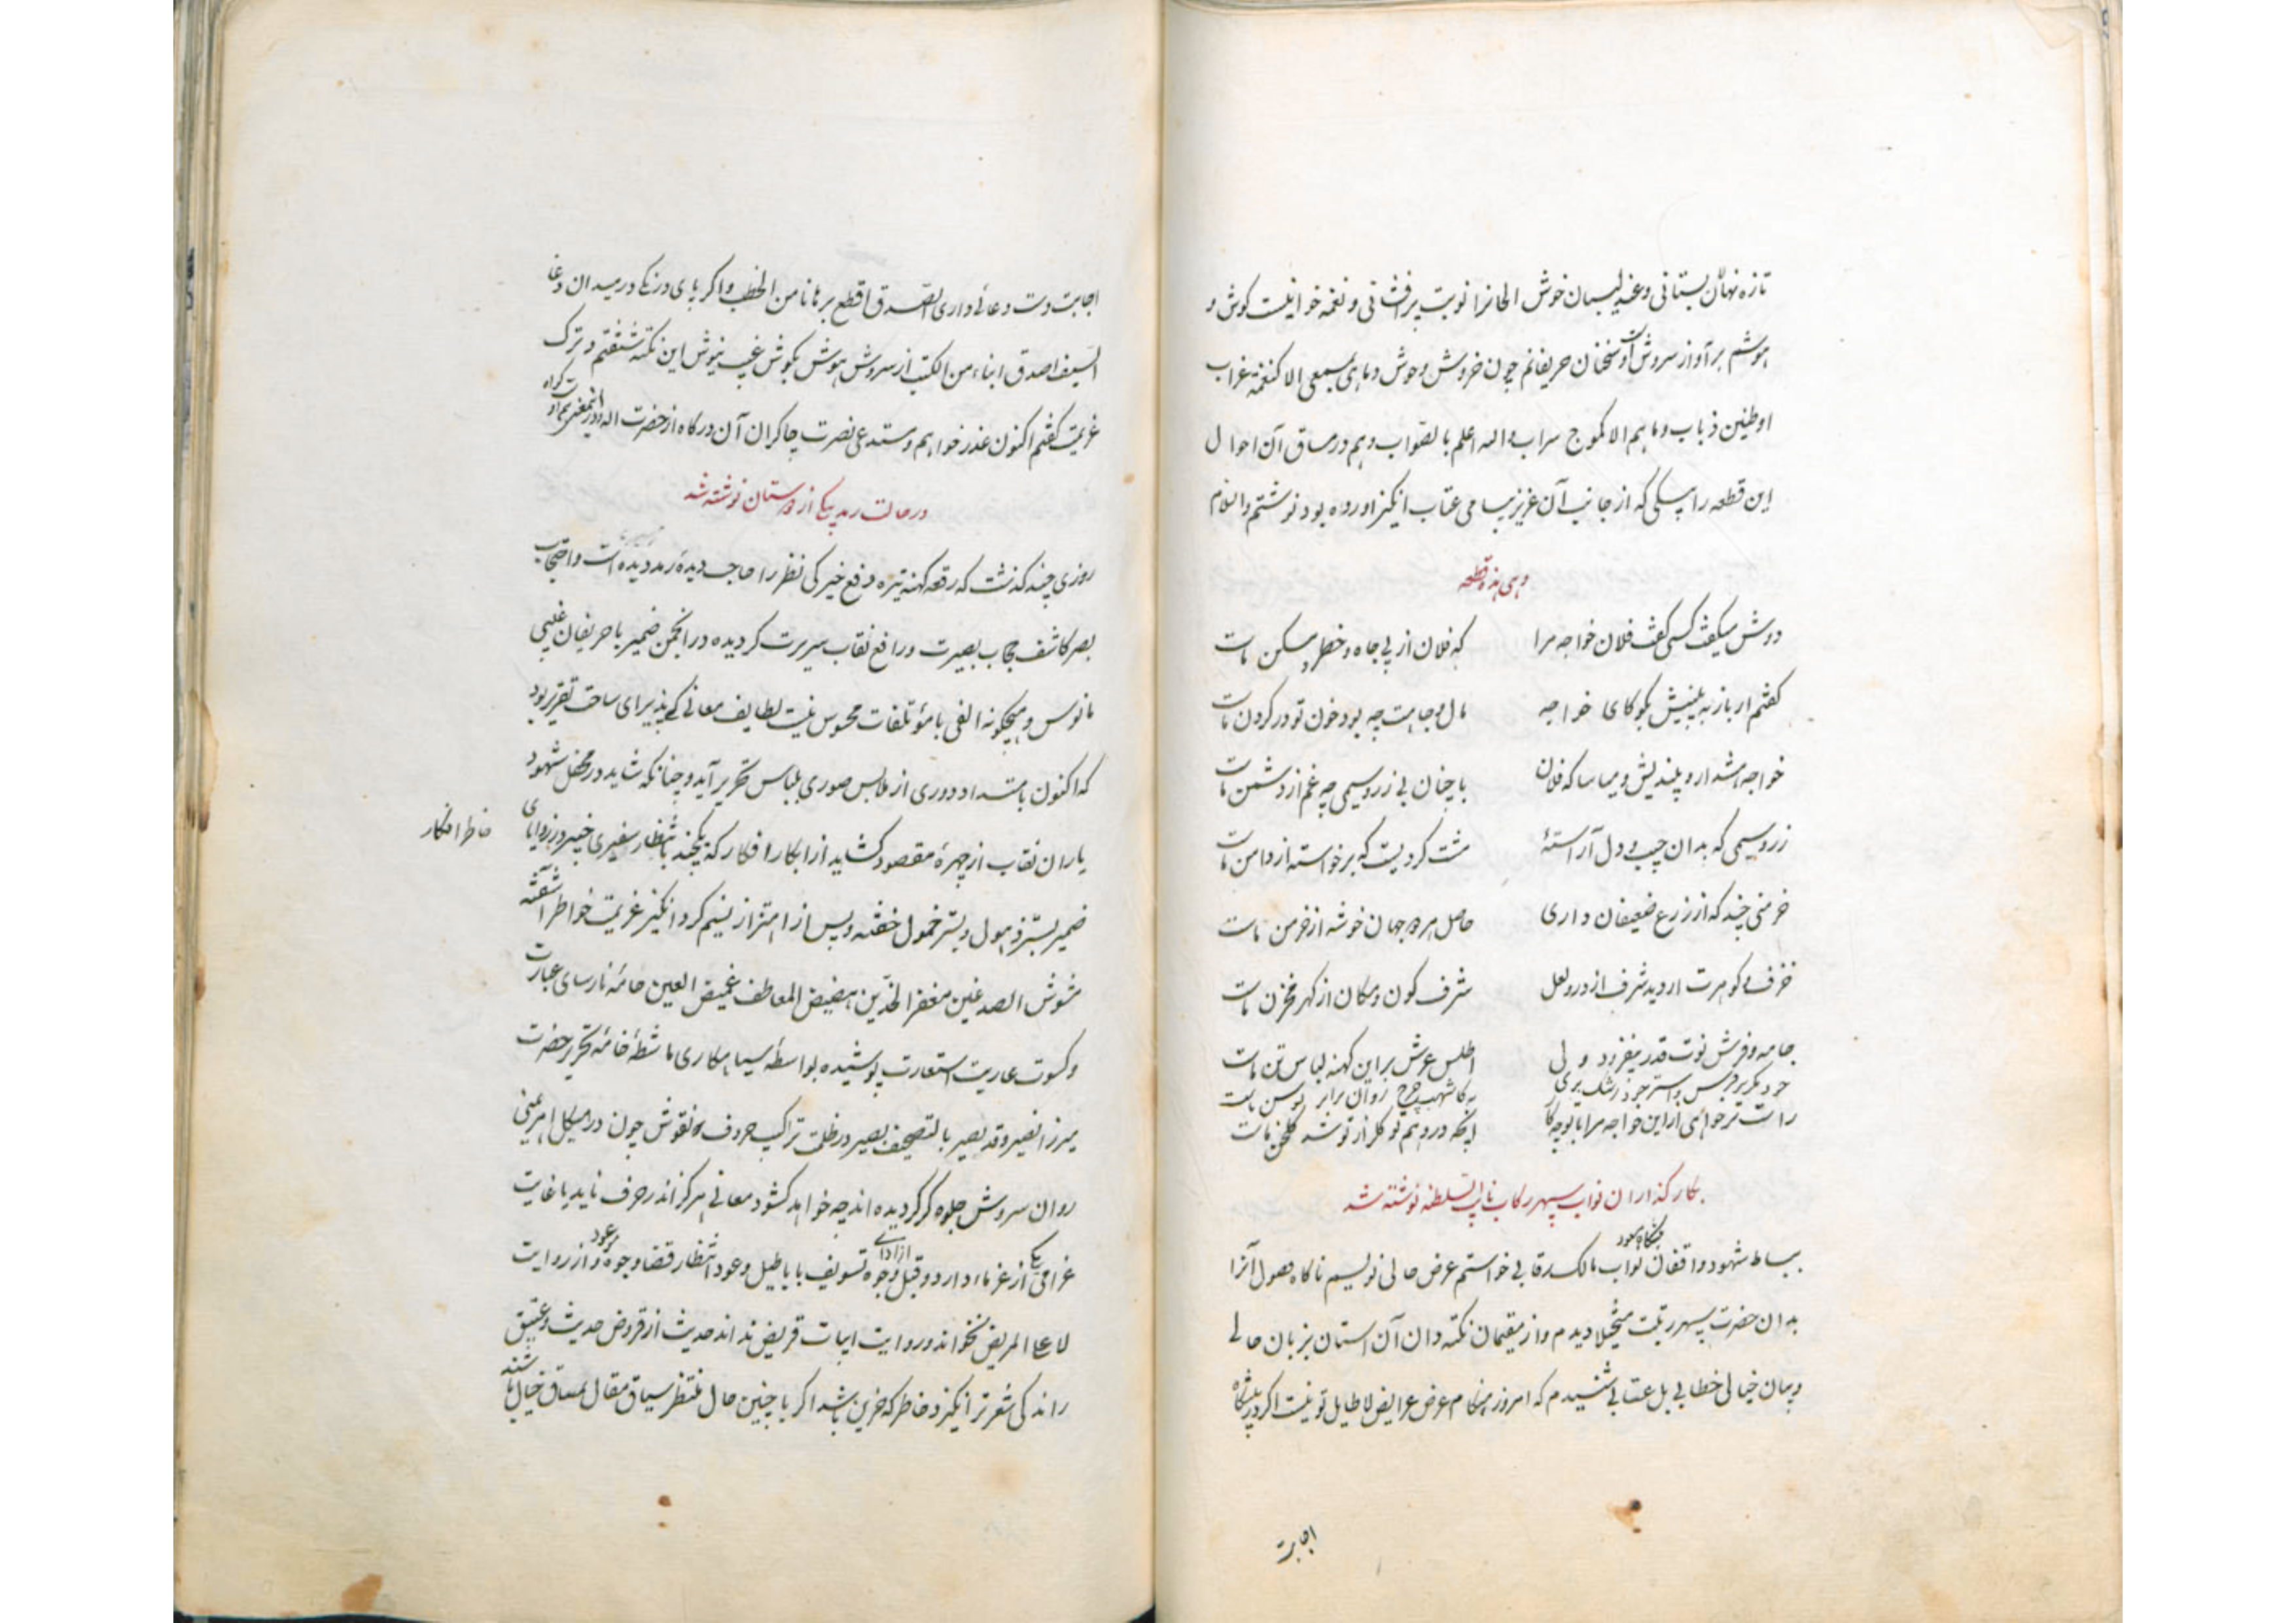 تازه نهالان بستانی و عندلیبان خوش الحانرا نوبت پرافشانی و نغمه خوانیست کوش و
هوشم بر آواز سروش است و سخنان حریفانم چون خروش وحوش و ما هی بسمعی الا کنغمة غراب
او طنین ذباب و ما هم الا کموج سراب والله اعلم بالصواب و هم در مساق آن احوال
این قطعه را به پیکی که از جانب آن عزیز پیامی عتاب انگیز آورده بود نوشتم والسلام
و هی هذه قطعه
دوش میگفت کسی گفت فلان خواجه مرا
که فلان از پی جاه و خطر و مسکن ماست
گفتم ار باز به بینیش بگو کای خواجه
مال و جاهت چه بود خون تو در گردن ماست
خواجه هشدار و بیندیش و میاسا که فلان
با چنان بی زر و سیمی چه غم از دشمن ماست
زر و سیمی که بدان جیب و دل آراسته
مشت کردیست که برخواسته از دامن ماست
خرمنی چند که از زرع ضعیفان داری
حاصل هر دو جهان خوشه از خرمن ماست
خزف و کوهرت ار دید شرف از در و لعل
شرف کون و مکان از کهر مخزن ماست
جامه و فرش نوت قدر بیفزود ولی
اطلس عرش براین کهنه لباس تن ماست
راست ترخواهی ازاین خواجه مرا باتو چکا
اینکه در وهم تو کلزار تو شد کلخن ماست
بکار کذاران نواب سپهر رکاب نایب السلطنه نوشته شد
بساط شهود و واقفان پیشگاه سعود نواب مالک رقابی خواستم عرض حالی نویسم ناکاه وصول آنرا
بدان حضرت سپهر رتبت متخیلا دیدم و از مقیمان نکته دان آن استان بزبان حالی
و بیان خیالی خطابی بل عتابی شنیدم که امروز هنکام عرض عرایض لاطایل تو نیست اکر در پیشگاه
اجابت
اجابت دست دعائی داری الصدق اقطع برهانا من الخطب و اکر پای درنکی در میدان وغا
السیف اصدق انباء من الکتب از سروش هوش بگوش غیب نیوش این نکته شنفتم و ترک
عزیمت گفتم اکنون عذر خواهم و مستدعی نصرت چاکران آن درکاه از حضرت اله و
در حالت رمد بیکی از دوستان نوشته شد
روزی چند کذشت که رقعه کهنه تیره و رفع خیرکی نظر را حاجب دیده رمد دیده است و احتجاب
بصر کاشف حجاب بصیرت و رافع نقاب سریرت کردیده در انجمن ضمیر با حریفان غیبی
مانوس و هیچکونه الفی با مؤتلفات محسوس نیست لطایف معانی که پذیرای ساحت تقریر بود
که اکنون بامتداد دوری از ملابس صوری بلباس تحریر آید و چنانکه شاید در محفل شهود
یاران نقاب از چهرهٔ مقصود کشاید از ابکار افکار که یکچند بانتظار سفیری خبیر در زوایای
خاطر افکار
ضمیر بستر ذهول و بستر خمول خفته و پس از اهتزاز نسیم کرد انگیز عزیمت خواطر آشفته
مشوش الصدغین مغفر الخدین هضیض المعاطف غمیض العین جامهٔ نارسای عبارت
و کسوت عاریت استعارت پوشیده بواسطهٔ سیاهکاری ماشطهٔ خامهٔ تحریر حضرت
میرزا نصیر و قد بصیر بالتصحیف بصیر در ظلمت تراکیب حروف و نقوش چون در هیکل اهرمنی
روان سروش جلوه کر کردیده اند چه خواهد کشود معانی هرکز اندر حرف ناید با غایت
غرامی که یکی از غرماء دارد و قبل از ادای وجوه تسویف باباطیل وعود انتظار قضا و جوه و از روایت
لا علی المریض نخواند و روایت ابیات قریض نداند حدیث از قروض حدیث و عتیق
راند کی شعر تر انگیزد خاطر که حزین باشد اکر با چنین حال منتظر سیاق مقال بمساق خیال باشند